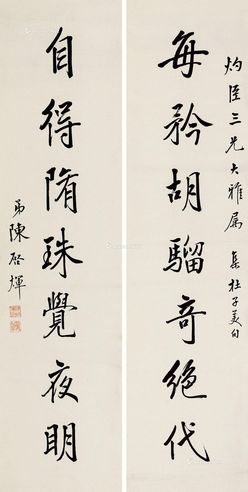 灼臣三兄大雅属 集杜子美句
每矜胡騮奇絕代
自得隋珠覺夜明
弟陳啓煇